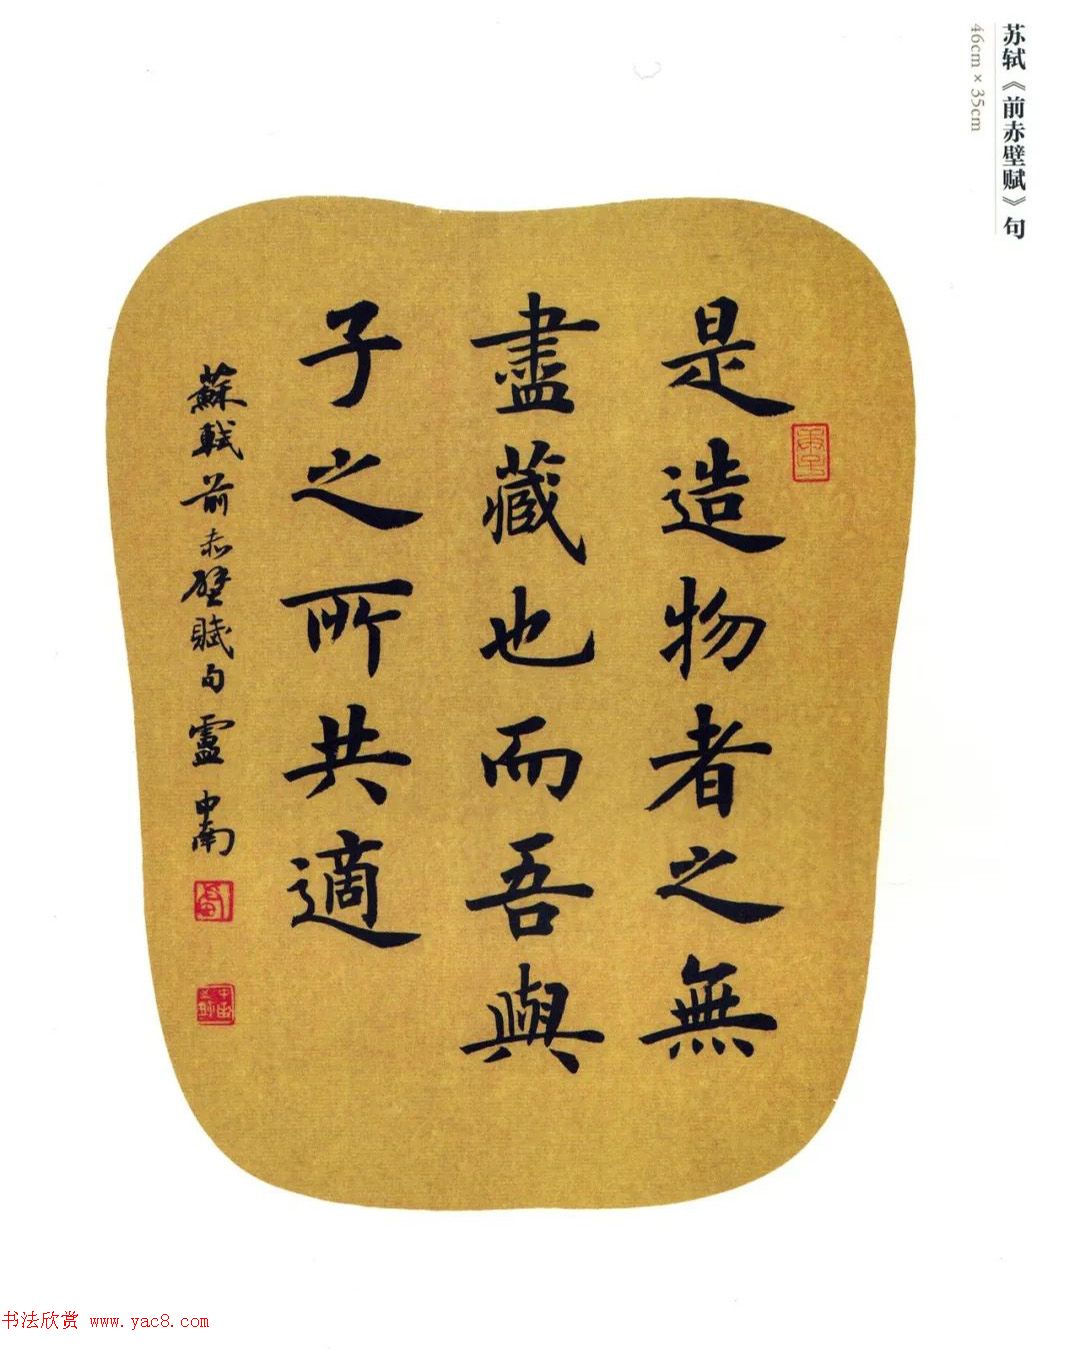 苏轼《前赤壁赋》句
46cm×35cm
是造物者之無
盡藏也而吾與
子之所共適
蘇軾前赤壁賦句盧中南
书法欣赏 www.yac8.com